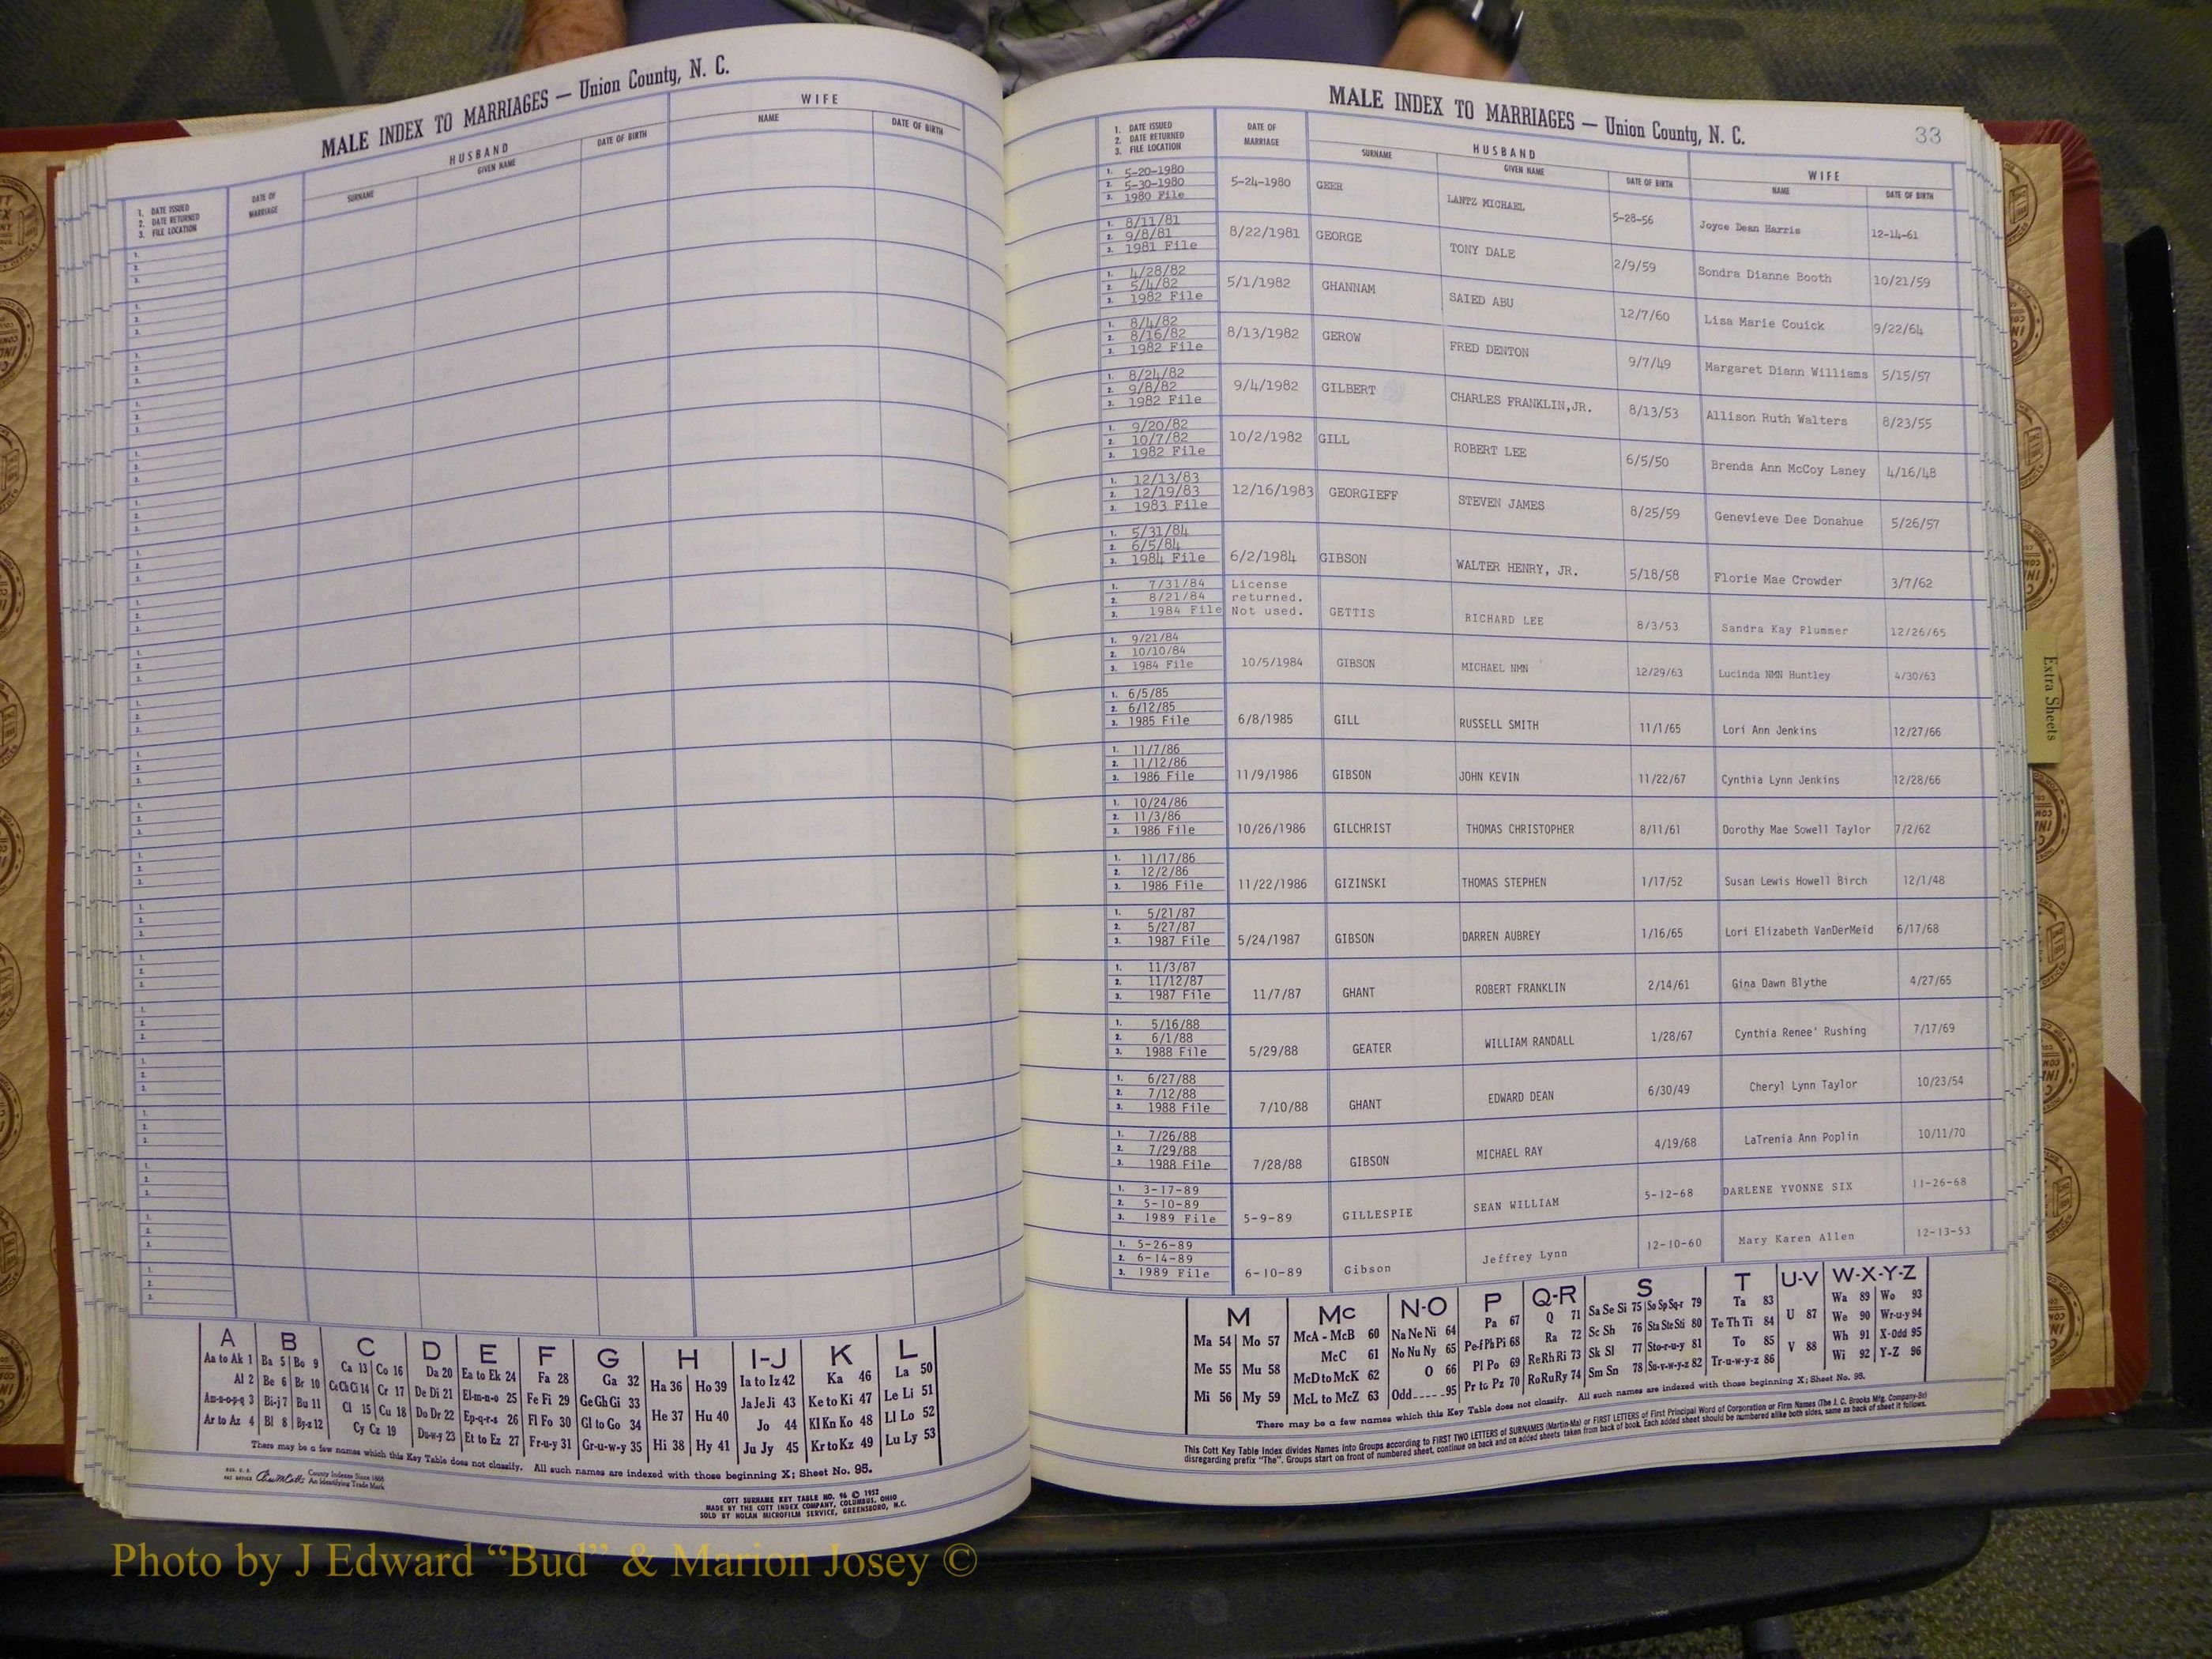 MALE INDEX TO MARRIAGES — Union County, N. C.
WIFE
HUSBAND
NAME
DATE OF BIRTH
GIVEN NAME
DATE OF BIRTH
SURNAME
DATE OF MARRIAGE
1. DATE ISSUED
2. DATE RETURNED
3. FILE LOCATION
A B C D E F G H I-J K L
Aa to Ak 1 Ba 5 Bo 9 Ca 13 Co 16 Da 20 Ea to Ek 24 Fa 28 Ga 32 Ha 36 Ho 39 Ia to Iz 42 Ka 46 La 50
Al 2 Be 6 Br 10 Ce Ch Ci 14 Cr 17 De Di 21 El-m-n-o 25 Fe Fi 29 Ge Gh Gi 33 He 37 Hu 40 Ja Je Ji 43 Ke to Ki 47 Le Li 51
Am-n-o-p-q 3 Bi-j 7 Bu 11 Cl 15 Cu 18 Do Dr 22 Ep-q-r-s 26 Fl Fo 30 Gl to Go 34 Hi 38 Hy 41 Jo 44 Kl Kn Ko 48 Ll Lo 52
Ar to Az 4 Bl 8 By-z 12 Cy Cz 19 Du-w-y 23 Et to Ez 27 Fr-u-y 31 Gr-u-w-y 35 Ju Jy 45 Kr to Kz 49 Lu Ly 53
There may be a few names which this Key Table does not classify. All such names are indexed with those beginning X; Sheet No. 95.
County Indexes Since 1888
An Identifying Trade Mark
COTT SURNAME KEY TABLE NO. 96 © 1952
MADE BY THE COTT INDEX COMPANY, COLUMBUS, OHIO
SOLD BY NOLAN MICROFILM SERVICE, GREENSBORO, N.C.
MALE INDEX TO MARRIAGES — Union County, N. C. 33
1. DATE ISSUED
2. DATE RETURNED
3. FILE LOCATION
DATE OF MARRIAGE
HUSBAND
SURNAME
GIVEN NAME
DATE OF BIRTH
WIFE
NAME
DATE OF BIRTH
1. 5-20-1980
2. 5-30-1980
3. 1980 File
5-24-1980 GEER LANTZ MICHAEL 5-28-56 Joyce Dean Harris 12-14-61
1. 8/11/81
2. 9/8/81
3. 1981 File
8/22/1981 GEORGE TONY DALE 2/9/59 Sondra Dianne Booth 10/21/59
1. 4/28/82
2. 5/4/82
3. 1982 File
5/1/1982 GHANNAM SAIED ABU 12/7/60 Lisa Marie Couick 9/22/64
1. 8/4/82
2. 8/16/82
3. 1982 File
8/13/1982 GEROW FRED DENTON 9/7/49 Margaret Diann Williams 5/15/57
1. 8/24/82
2. 9/8/82
3. 1982 File
9/4/1982 GILBERT CHARLES FRANKLIN,JR. 8/13/53 Allison Ruth Walters 8/23/55
1. 9/20/82
2. 10/7/82
3. 1982 File
10/2/1982 GILL ROBERT LEE 6/5/50 Brenda Ann McCoy Laney 4/16/48
1. 12/13/83
2. 12/19/83
3. 1983 File
12/16/1983 GEORGIEFF STEVEN JAMES 8/25/59 Genevieve Dee Donahue 5/26/57
1. 5/31/84
2. 6/5/84
3. 1984 File
6/2/1984 GIBSON WALTER HENRY, JR. 5/18/58 Florie Mae Crowder 3/7/62
1. 7/31/84
2. 8/21/84
3. 1984 File
License returned. Not used. GETTIS RICHARD LEE 8/3/53 Sandra Kay Plummer 12/26/65
1. 9/21/84
2. 10/10/84
3. 1984 File
10/5/1984 GIBSON MICHAEL NMN 12/29/63 Lucinda NMN Huntley 4/30/63
1. 6/5/85
2. 6/12/85
3. 1985 File
6/8/1985 GILL RUSSELL SMITH 11/1/65 Lori Ann Jenkins 12/27/66
1. 11/7/86
2. 11/12/86
3. 1986 File
11/9/1986 GIBSON JOHN KEVIN 11/22/67 Cynthia Lynn Jenkins 12/28/66
1. 10/24/86
2. 11/3/86
3. 1986 File
10/26/1986 GILCHRIST THOMAS CHRISTOPHER 8/11/61 Dorothy Mae Sowell Taylor 7/2/62
1. 11/17/86
2. 12/2/86
3. 1986 File
11/22/1986 GIZINSKI THOMAS STEPHEN 1/17/52 Susan Lewis Howell Birch 12/1/48
1. 5/21/87
2. 5/27/87
3. 1987 File
5/24/1987 GIBSON DARREN AUBREY 1/16/65 Lori Elizabeth VanDerMeid 6/17/68
1. 11/3/87
2. 11/12/87
3. 1987 File
11/7/87 GHANT ROBERT FRANKLIN 2/14/61 Gina Dawn Blythe 4/27/65
1. 5/16/88
2. 6/1/88
3. 1988 File
5/29/88 GEATER WILLIAM RANDALL 1/28/67 Cynthia Renee' Rushing 7/17/69
1. 6/27/88
2. 7/12/88
3. 1988 File
7/10/88 GHANT EDWARD DEAN 6/30/49 Cheryl Lynn Taylor 10/23/54
1. 7/26/88
2. 7/29/88
3. 1988 File
7/28/88 GIBSON MICHAEL RAY 4/19/68 LaTrenia Ann Poplin 10/11/70
1. 3-17-89
2. 5-10-89
3. 1989 File
5-9-89 GILLESPIE SEAN WILLIAM 5-12-68 DARLENE YVONNE SIX 11-26-68
1. 5-26-89
2. 6-14-89
3. 1989 File
6-10-89 Gibson Jeffrey Lynn 12-10-60 Mary Karen Allen 12-13-53
M Mc N-O P Q-R S T U-V W-X-Y-Z
Ma 54 Mo 57 McA - McB 60 Na Ne Ni 64 Pa 67 Q 71 Sa Se Si 75 So Sp Sq-r 79 Ta 83 U 87 Wa 89 Wo 93
Me 55 Mu 58 McC 61 No Nu Ny 65 Pe-f Ph Pi 68 Ra 72 Sc Sh 76 Sta Ste Sti 80 Te Th Ti 84 V 88 We 90 Wr-u-y 94
McD to McK 62 O 66 Pl Po 69 Re Rh Ri 73 Sk Sl 77 Sto-r-u-y 81 To 85 Wh 91 X-Odd 95
Mi 56 My 59 McL to McZ 63 Odd 95 Pr to Pz 70 Ro Ru Ry 74 Sm Sn 78 Su-v-w-y-z 82 Tr-u-w-y-z 86 Wi 92 Y-Z 96
There may be a few names which this Key Table does not classify. All such names are indexed with those beginning X; Sheet No. 95.
This Cott Key Table Index divides Names into Groups according to FIRST TWO LETTERS of SURNAMES (Martin-Ma) or FIRST LETTERS of First Principal Word of Corporation or Firm Names (The J. C. Brooks Mfg. Company-Br)
disregarding prefix "The". Groups start on front of numbered sheet, continue on back and on added sheets taken from back of book. Each added sheet should be numbered alike both sides, same as back of sheet it follows.
Extra Sheets
Photo by J Edward “Bud” & Marion Josey ©